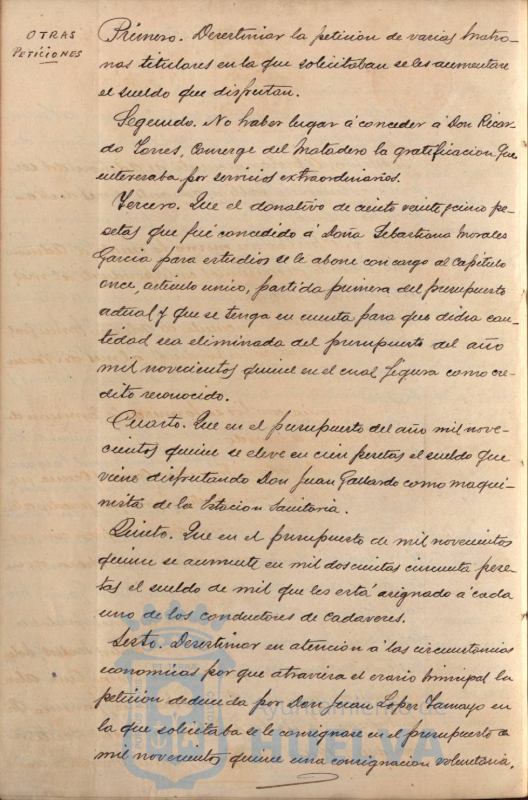 OTRAS
PETICIONES
Primero. Desestimar la petición de varias Matro-
nas titulares en la que solicitaban se les aumentare
el sueldo que disfrutan.
Segundo. No haber lugar á conceder á Don Ricar-
do Torres, Conserge del Matadero la gratificacion que
interesaba por servicios extraordinarios.
Tercero. Que el donativo de ciento veinte y cinco pe-
setas que fué concedido á Doña Sebastiana Morales
Garcia para estudios se le abone con cargo al Capítulo
once, articulo unico, partida primera del presupuesto
actual y que se tenga en cuenta para que dicha can-
tidad sea eliminada del presupuesto del año
mil novecientos quince en el cual figura como cre-
dito reconocido.
Cuarto. Que en el presupuesto del año mil nove-
cientos quince se eleve en cien pesetas el sueldo que
viene disfrutando Don Juan Gallardo como maqui-
nista de la Estacion Sanitaria.
Quinto. Que en el presupuesto de mil novecientos
quince se aumente en mil doscientas cincuenta pese-
tas el sueldo de mil que les está asignado á cada
uno de los conductores de Cadaveres.
Sexto. Desestimar en atención á las circunstancias
economicas por que atraviesa el erario municipal la
petición deducida por Don Juan Lopez Tamayo en
la que solicitaba se le consignase en el presupuesto de
mil novecientos quince una consignacion voluntaria.
Ayuntamiento de
HUELVA